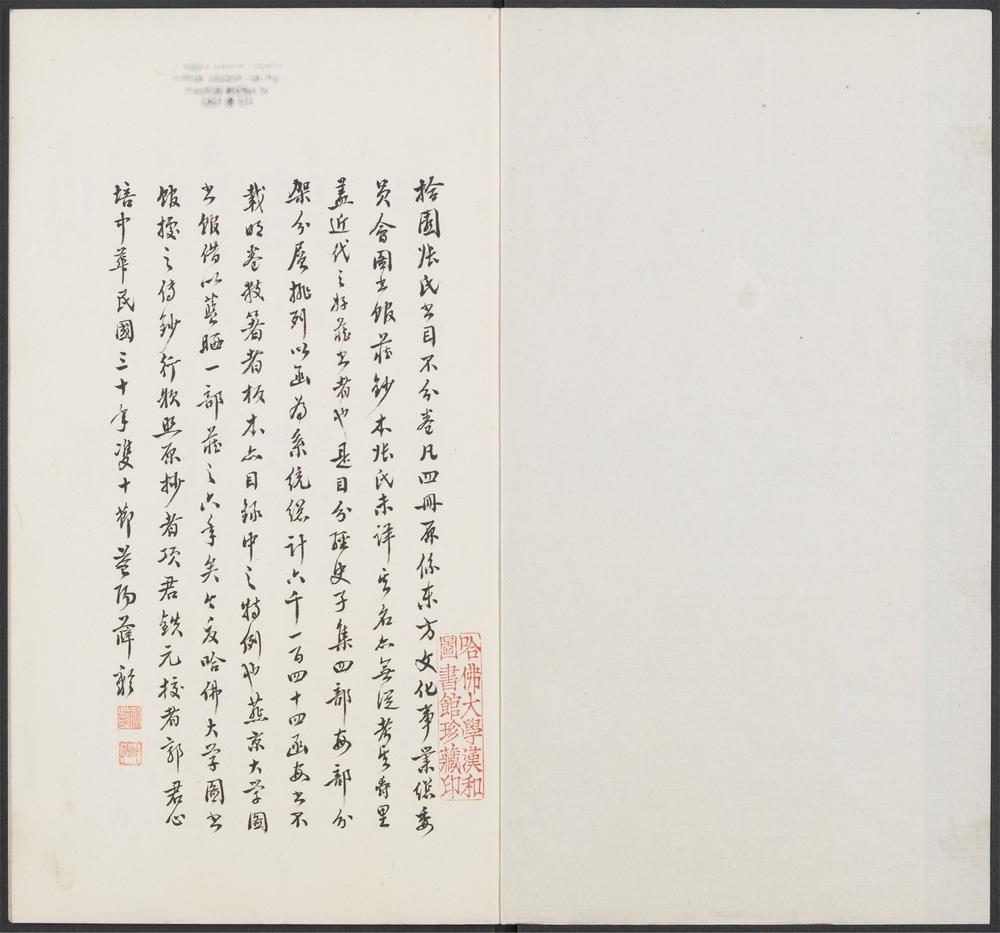 拾園張氏书目不分卷凡四冊原係东方文化事業總委
员会圖书馆藏鈔本张氏未详其名亦無從考其爵里
蓋近代之好藏书者也是目分經史子集四部每部分
架分層排列以函为系统總计六千一百四十四函每书不
载明卷数著者板本亦目録中之特例也燕京大学圖
书馆借以藍晒一部藏之六年矣今夏哈佛大学圖书
馆據之传鈔行款照原抄者项君鉄元校者郭君心
培中華民國三十年雙十節益陽薛
哈佛大學漢和
圖書館珍藏印